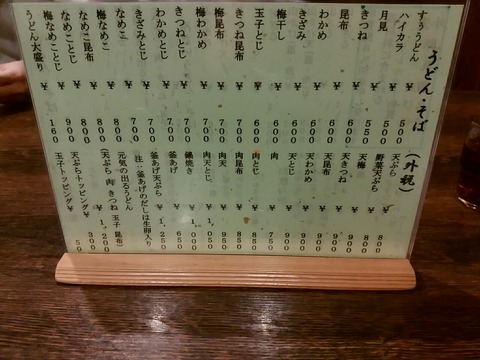 うどん・そば
(外税)
すうどん ¥500
ハイカラ ¥500
月見 ¥550
きつね ¥550
昆布 ¥600
わかめ ¥600
きざみ ¥600
梅干し ¥600
玉子とじ ¥600
きつね昆布 ¥700
梅昆布 ¥700
梅わかめ ¥700
きつねとじ ¥700
わかめとじ ¥700
きざみとじ ¥700
なめこ ¥700
なめこ昆布 ¥800
梅なめこ ¥800
なめことじ ¥800
梅なめことじ ¥900
うどん大盛り ¥160
天ぷら ¥800
野菜天ぷら ¥800
天梅 ¥900
天きつね ¥900
天昆布 ¥900
天わかめ ¥900
天とじ ¥900
肉 ¥750
肉とじ ¥850
肉昆布 ¥850
肉天 ¥950
肉天とじ ¥1,050
鍋焼き ¥1,000
釜あげ ¥650
釜あげ天ぷら ¥1,250
(注:釜あげのだしは生卵入り)
元気の出るうどん
(天ぷら 肉 きつね 玉子 昆布) ¥1,200
天ぷらトッピング ¥300
玉子トッピング ¥50